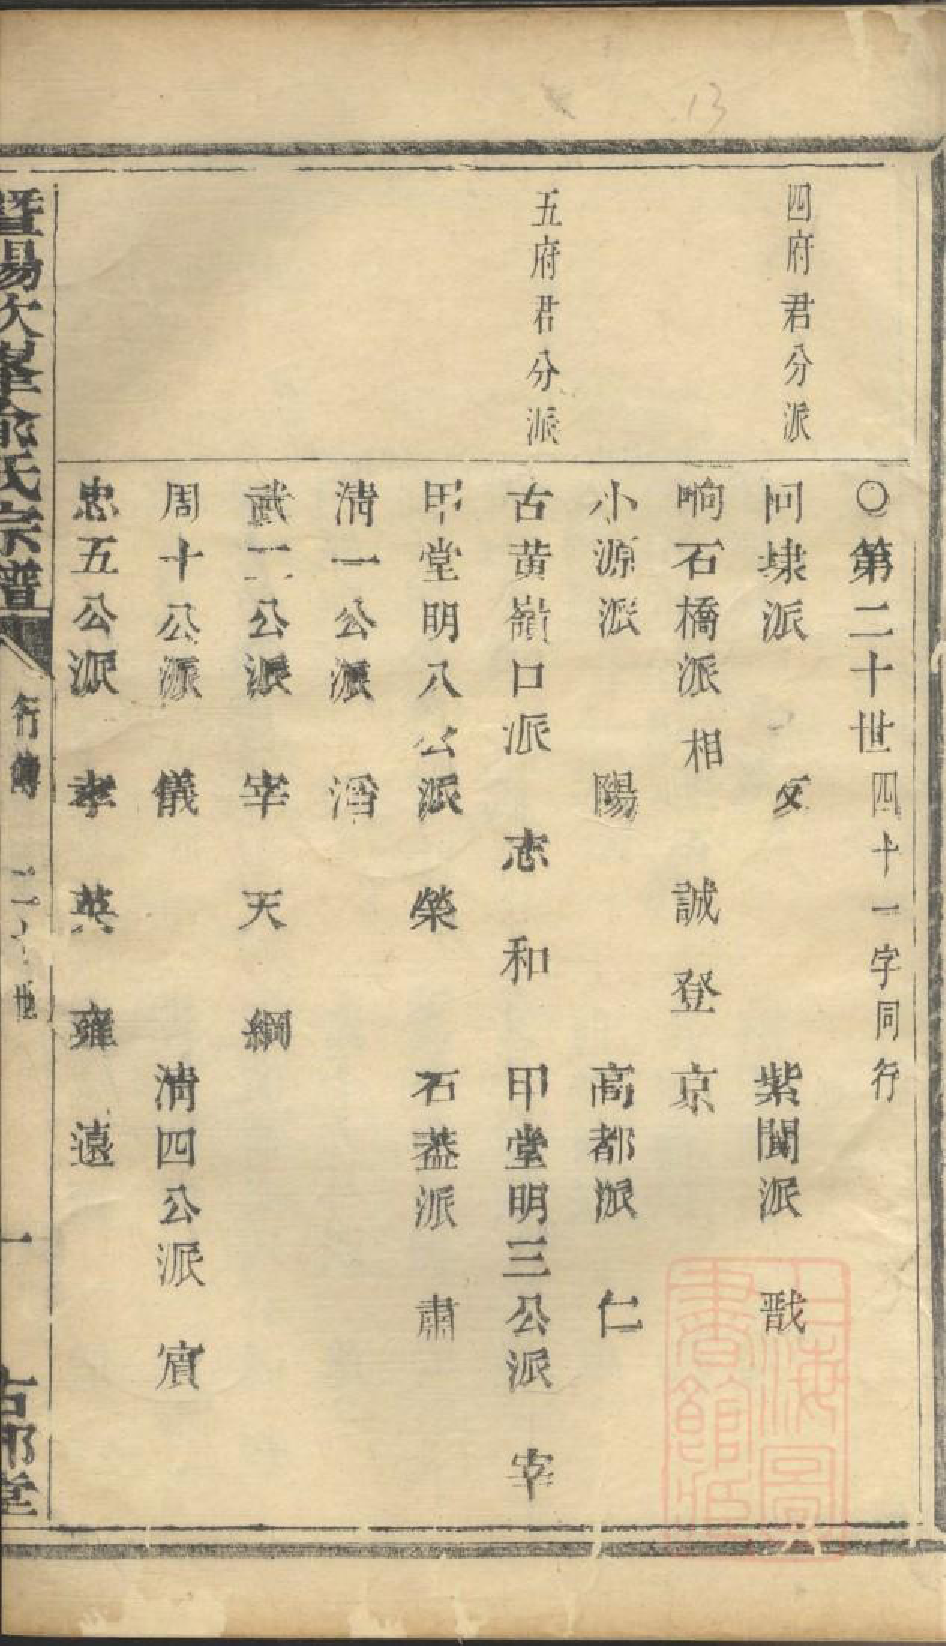 13
〇第二十世四十一字同行
四府君分派
問埭派 文 紫閬派 戩
响石橋派 相 誠 登 京
小源派 陽 高都派 仁
五府君分派
古黄嶺口派 志 和 甲堂明三公派 宰
甲堂明八公派 榮 石蓋派 肅
清一公派 滔
武二公派 宰 天 綱
周十公派 儀 清四公派 賓
忠五公派 孝 英 雍 遠
暨陽次峯俞氏宗譜 行傳 二十世 一 古郡堂
上海圖書館藏